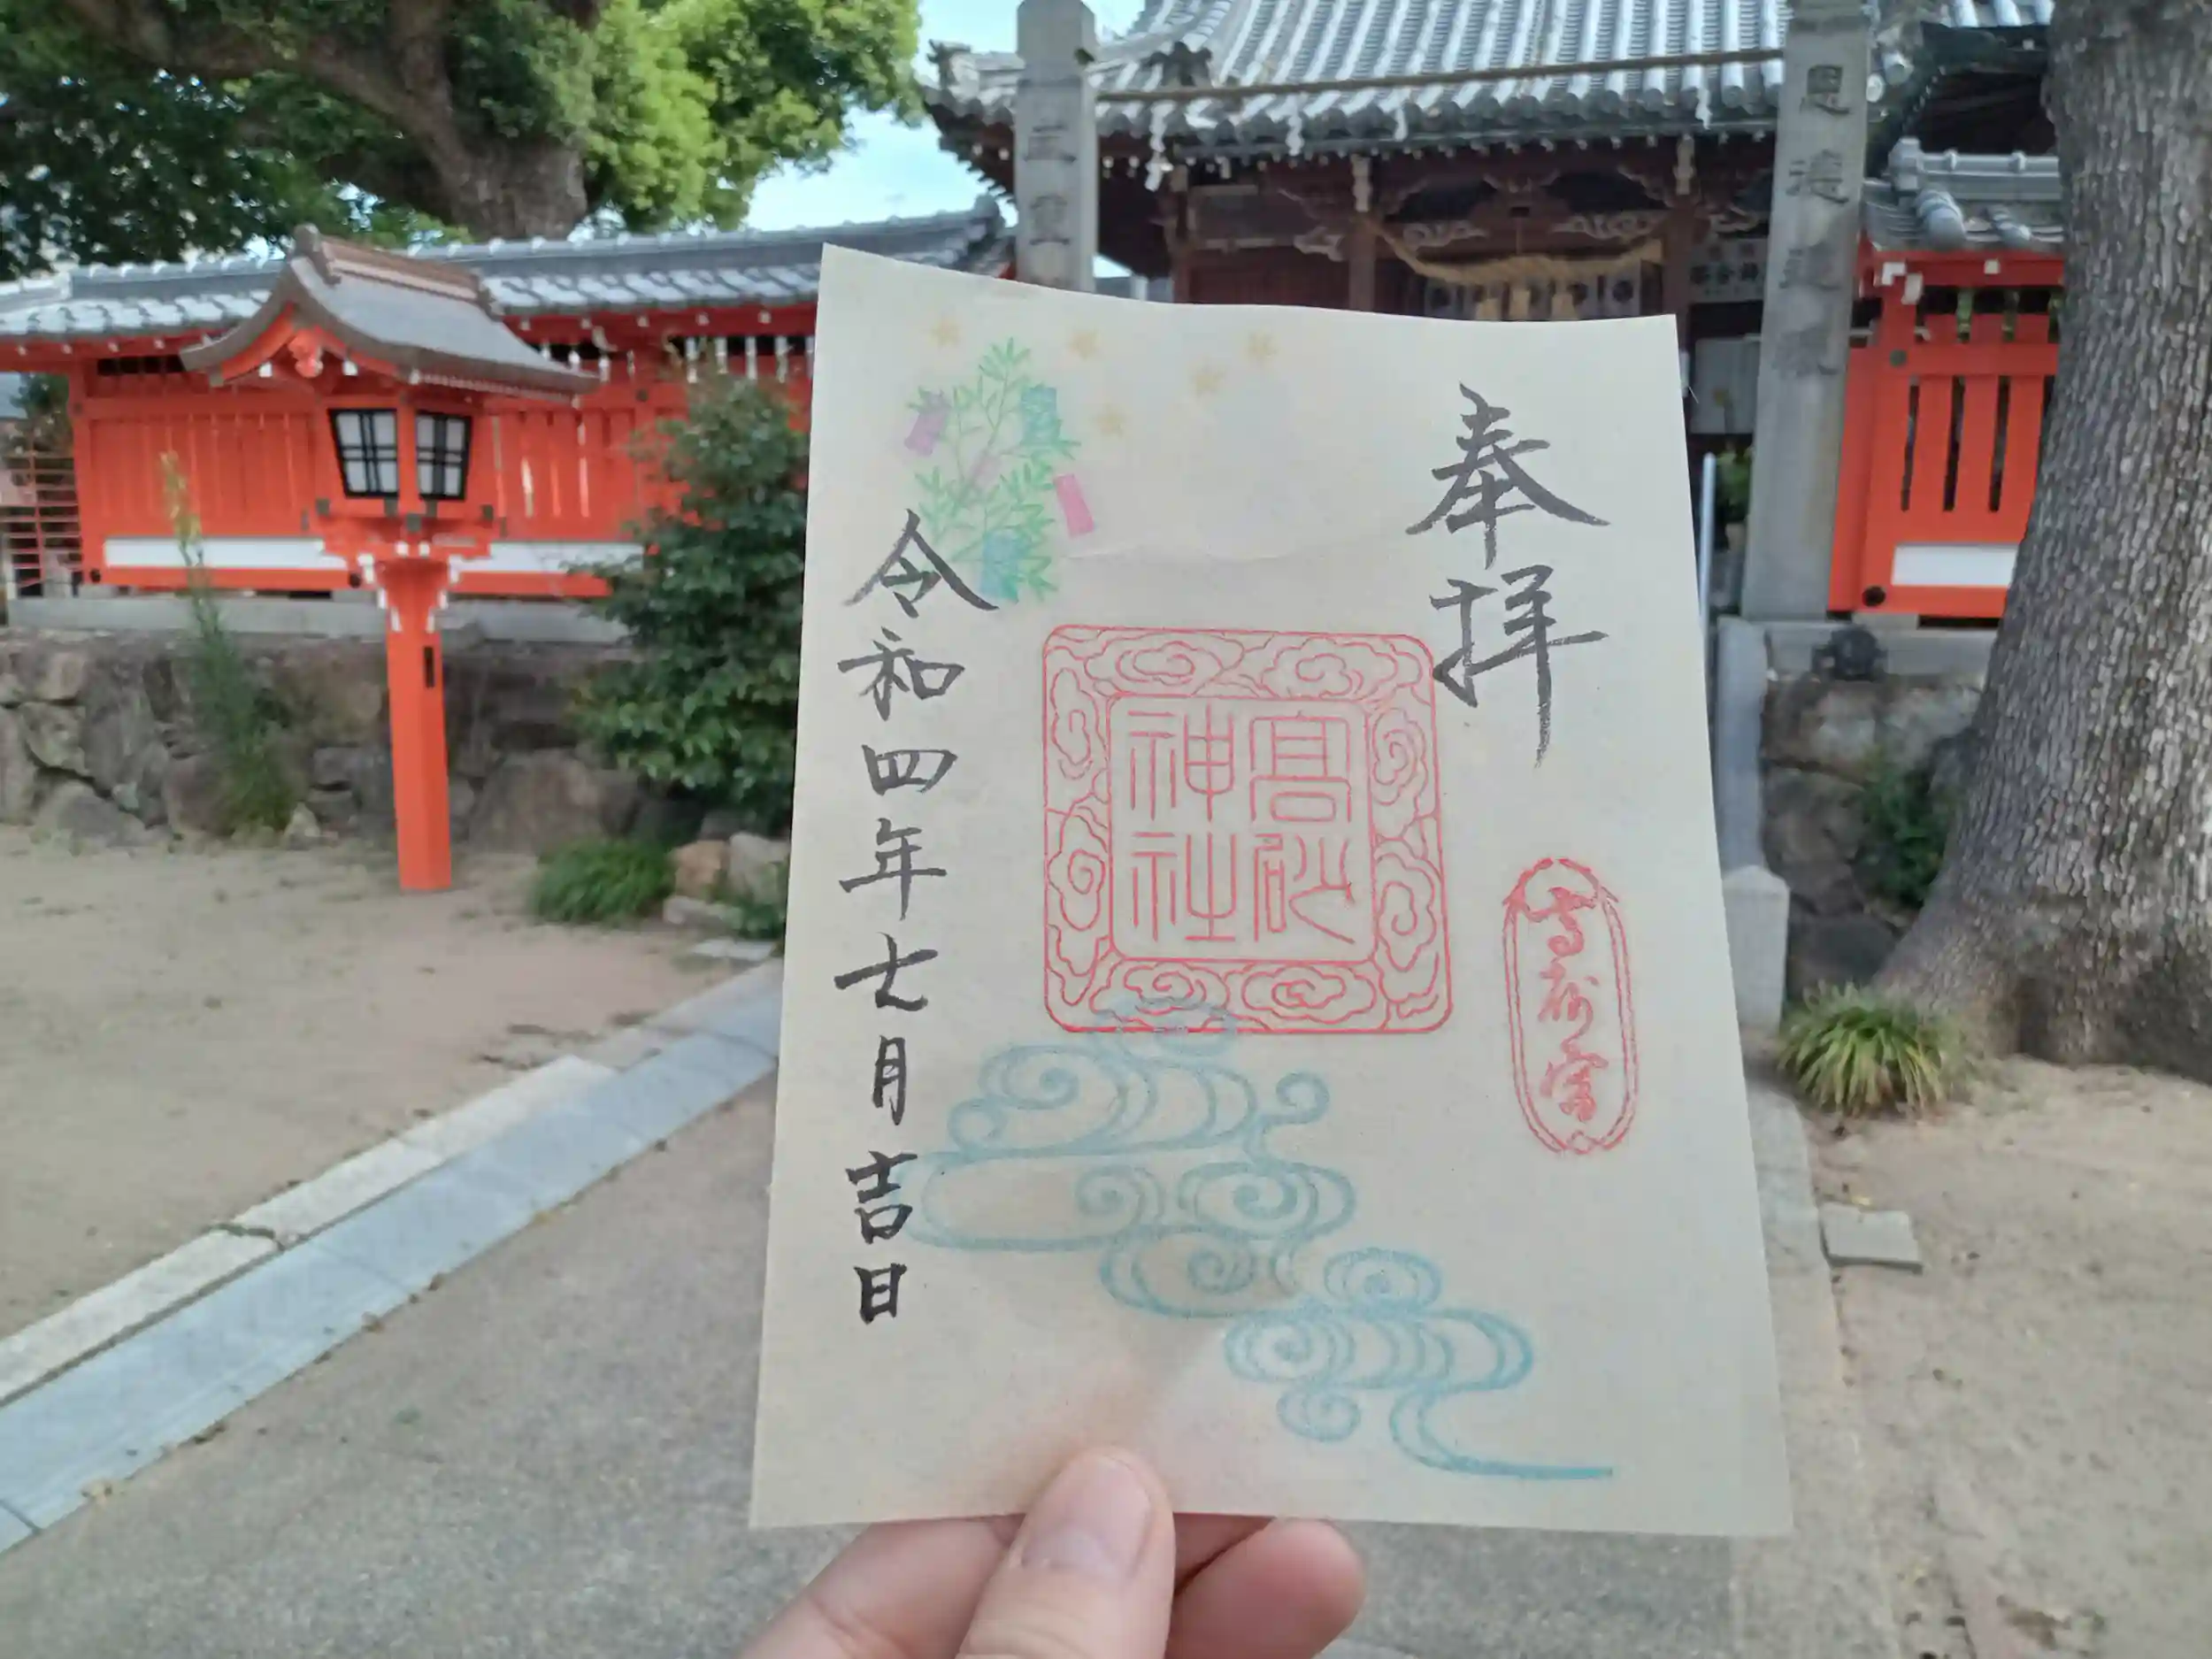 奉拝
高砂
神社
高砂宮
令和四年七月吉日